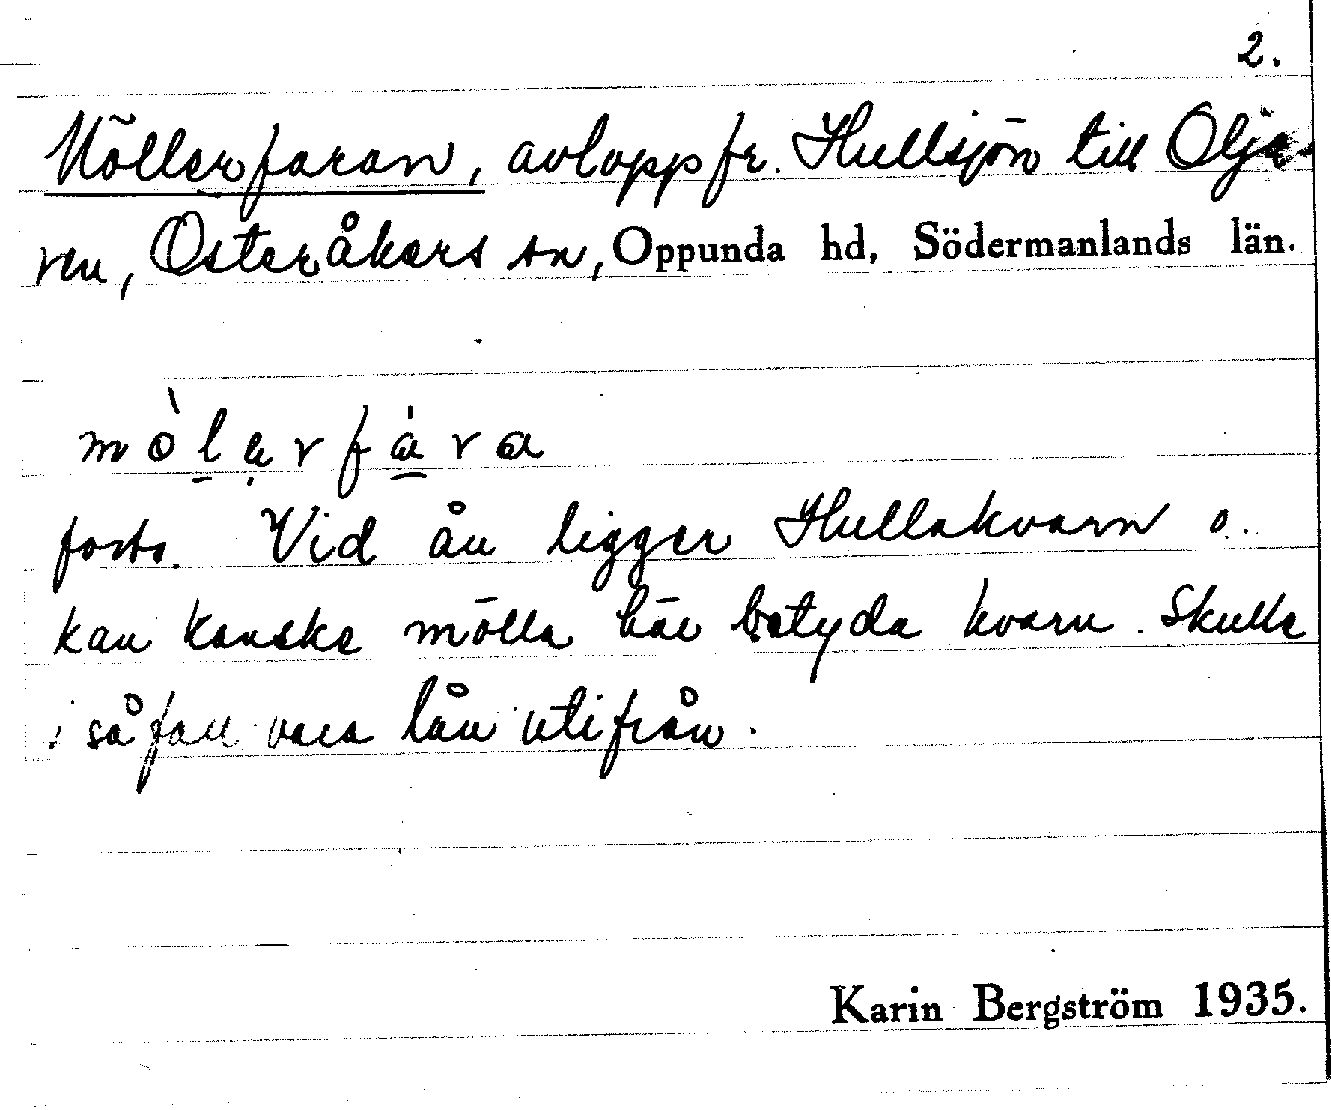 2.
Möllerfaran, avlopp fr. Hullsjön till Olja-
ren, Österåkers sn, Oppunda hd, Södermanlands län.
mòlarfára
forts. Vid ån ligger Hullakvarn o.
kan kanske mölla här betyda kvarn. Skulle
i så fall vara lån utifrån.
Karin Bergström 1935.